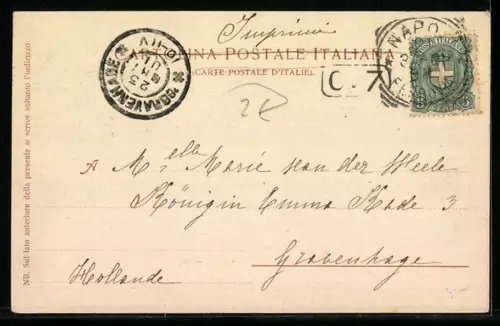 Imprimé
CARTOLINA POSTALE ITALIANA
(CARTE POSTALE D'ITALIE).
'SGRAVENHAGE
10-11V
23
NAPOLI
2E
A Melle Marie van der Weele
Königin Emma Kade 3
Gravenhage
Hollande
NB. Sul lato anteriore della presente si scrive soltanto l'indirizzo.